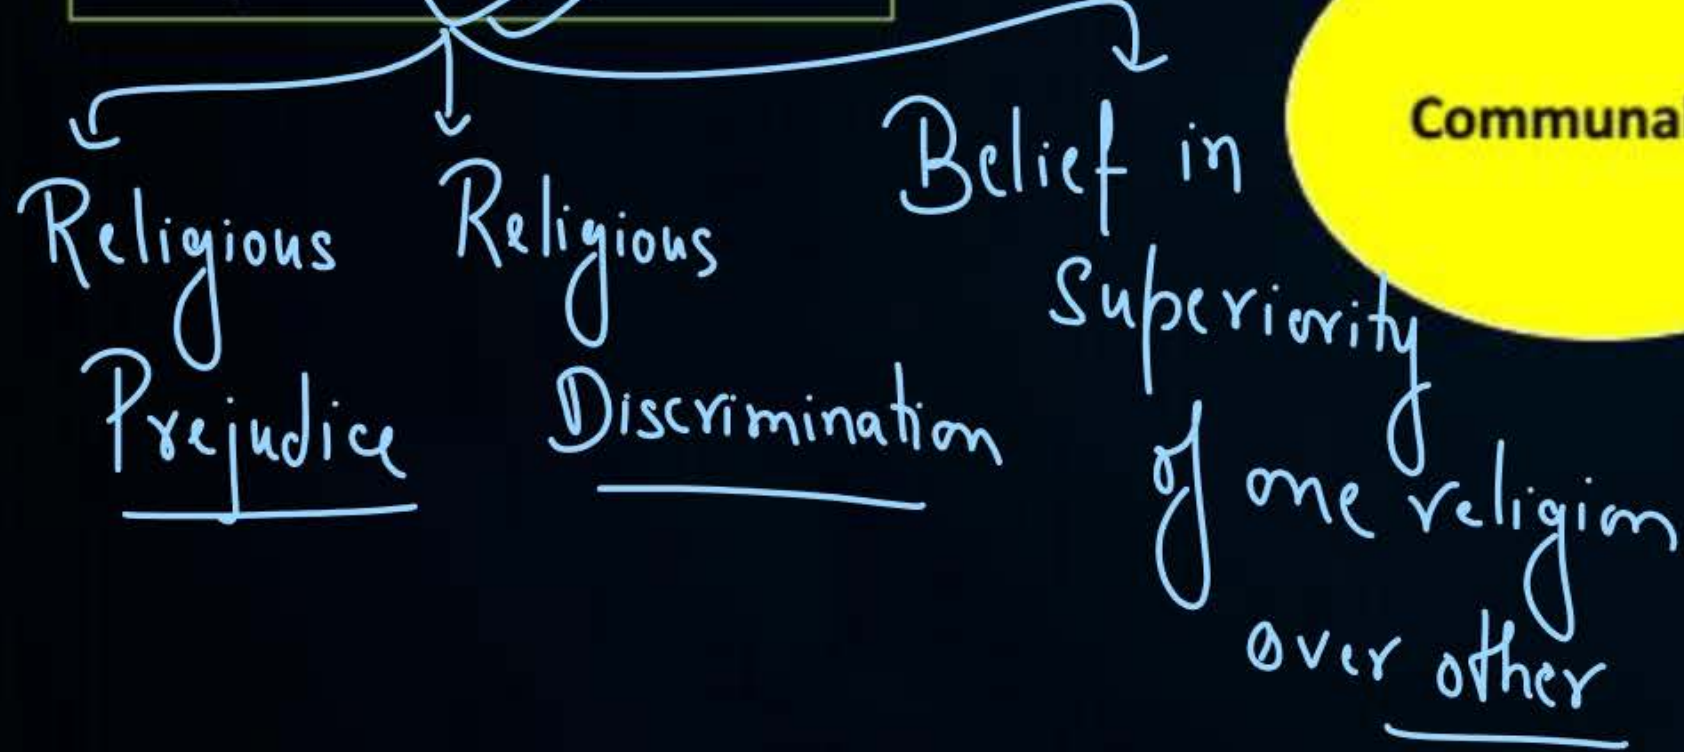 Religious
Prejudice
Religious
Discrimination
Belief in
Superiority
of one religion
over other
Communal